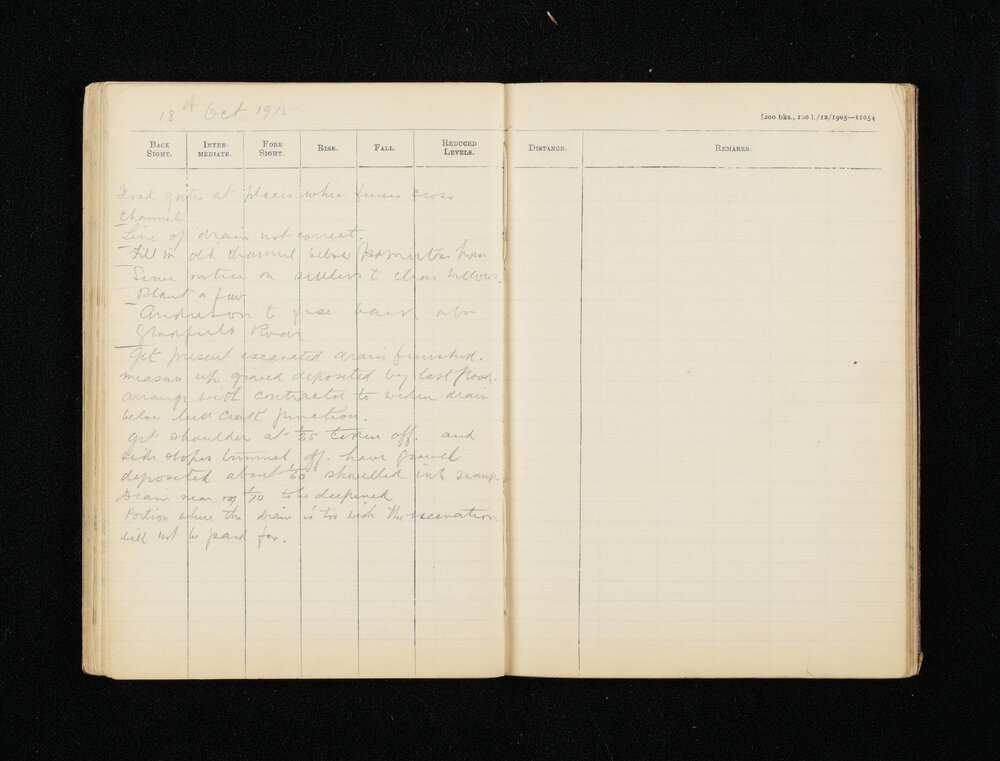 18th Oct 1915
[200 bks., 100 l./12/1905—11054
BACK SIGHT. INTERMEDIATE. FORE SIGHT. RISE. FALL. REDUCED LEVELS. DISTANCE. REMARKS.
Flood gates at places where fences cross
Channel
Line of drain not correct.
Fill in old channel below
notice on settlers to clear willows.
Plant a few
Anderson to
Road
Get present excavated drain finished.
measure up gravel deposited by last flood.
arrange with contractor to widen drain
below Creek junction.
Get shoulder at taken off. and
side slopes trimmed off. have gravel
deposited about shovelled into
Drain near to be deepened
Portion where the drain is too wide the excavation
will not be paid for.